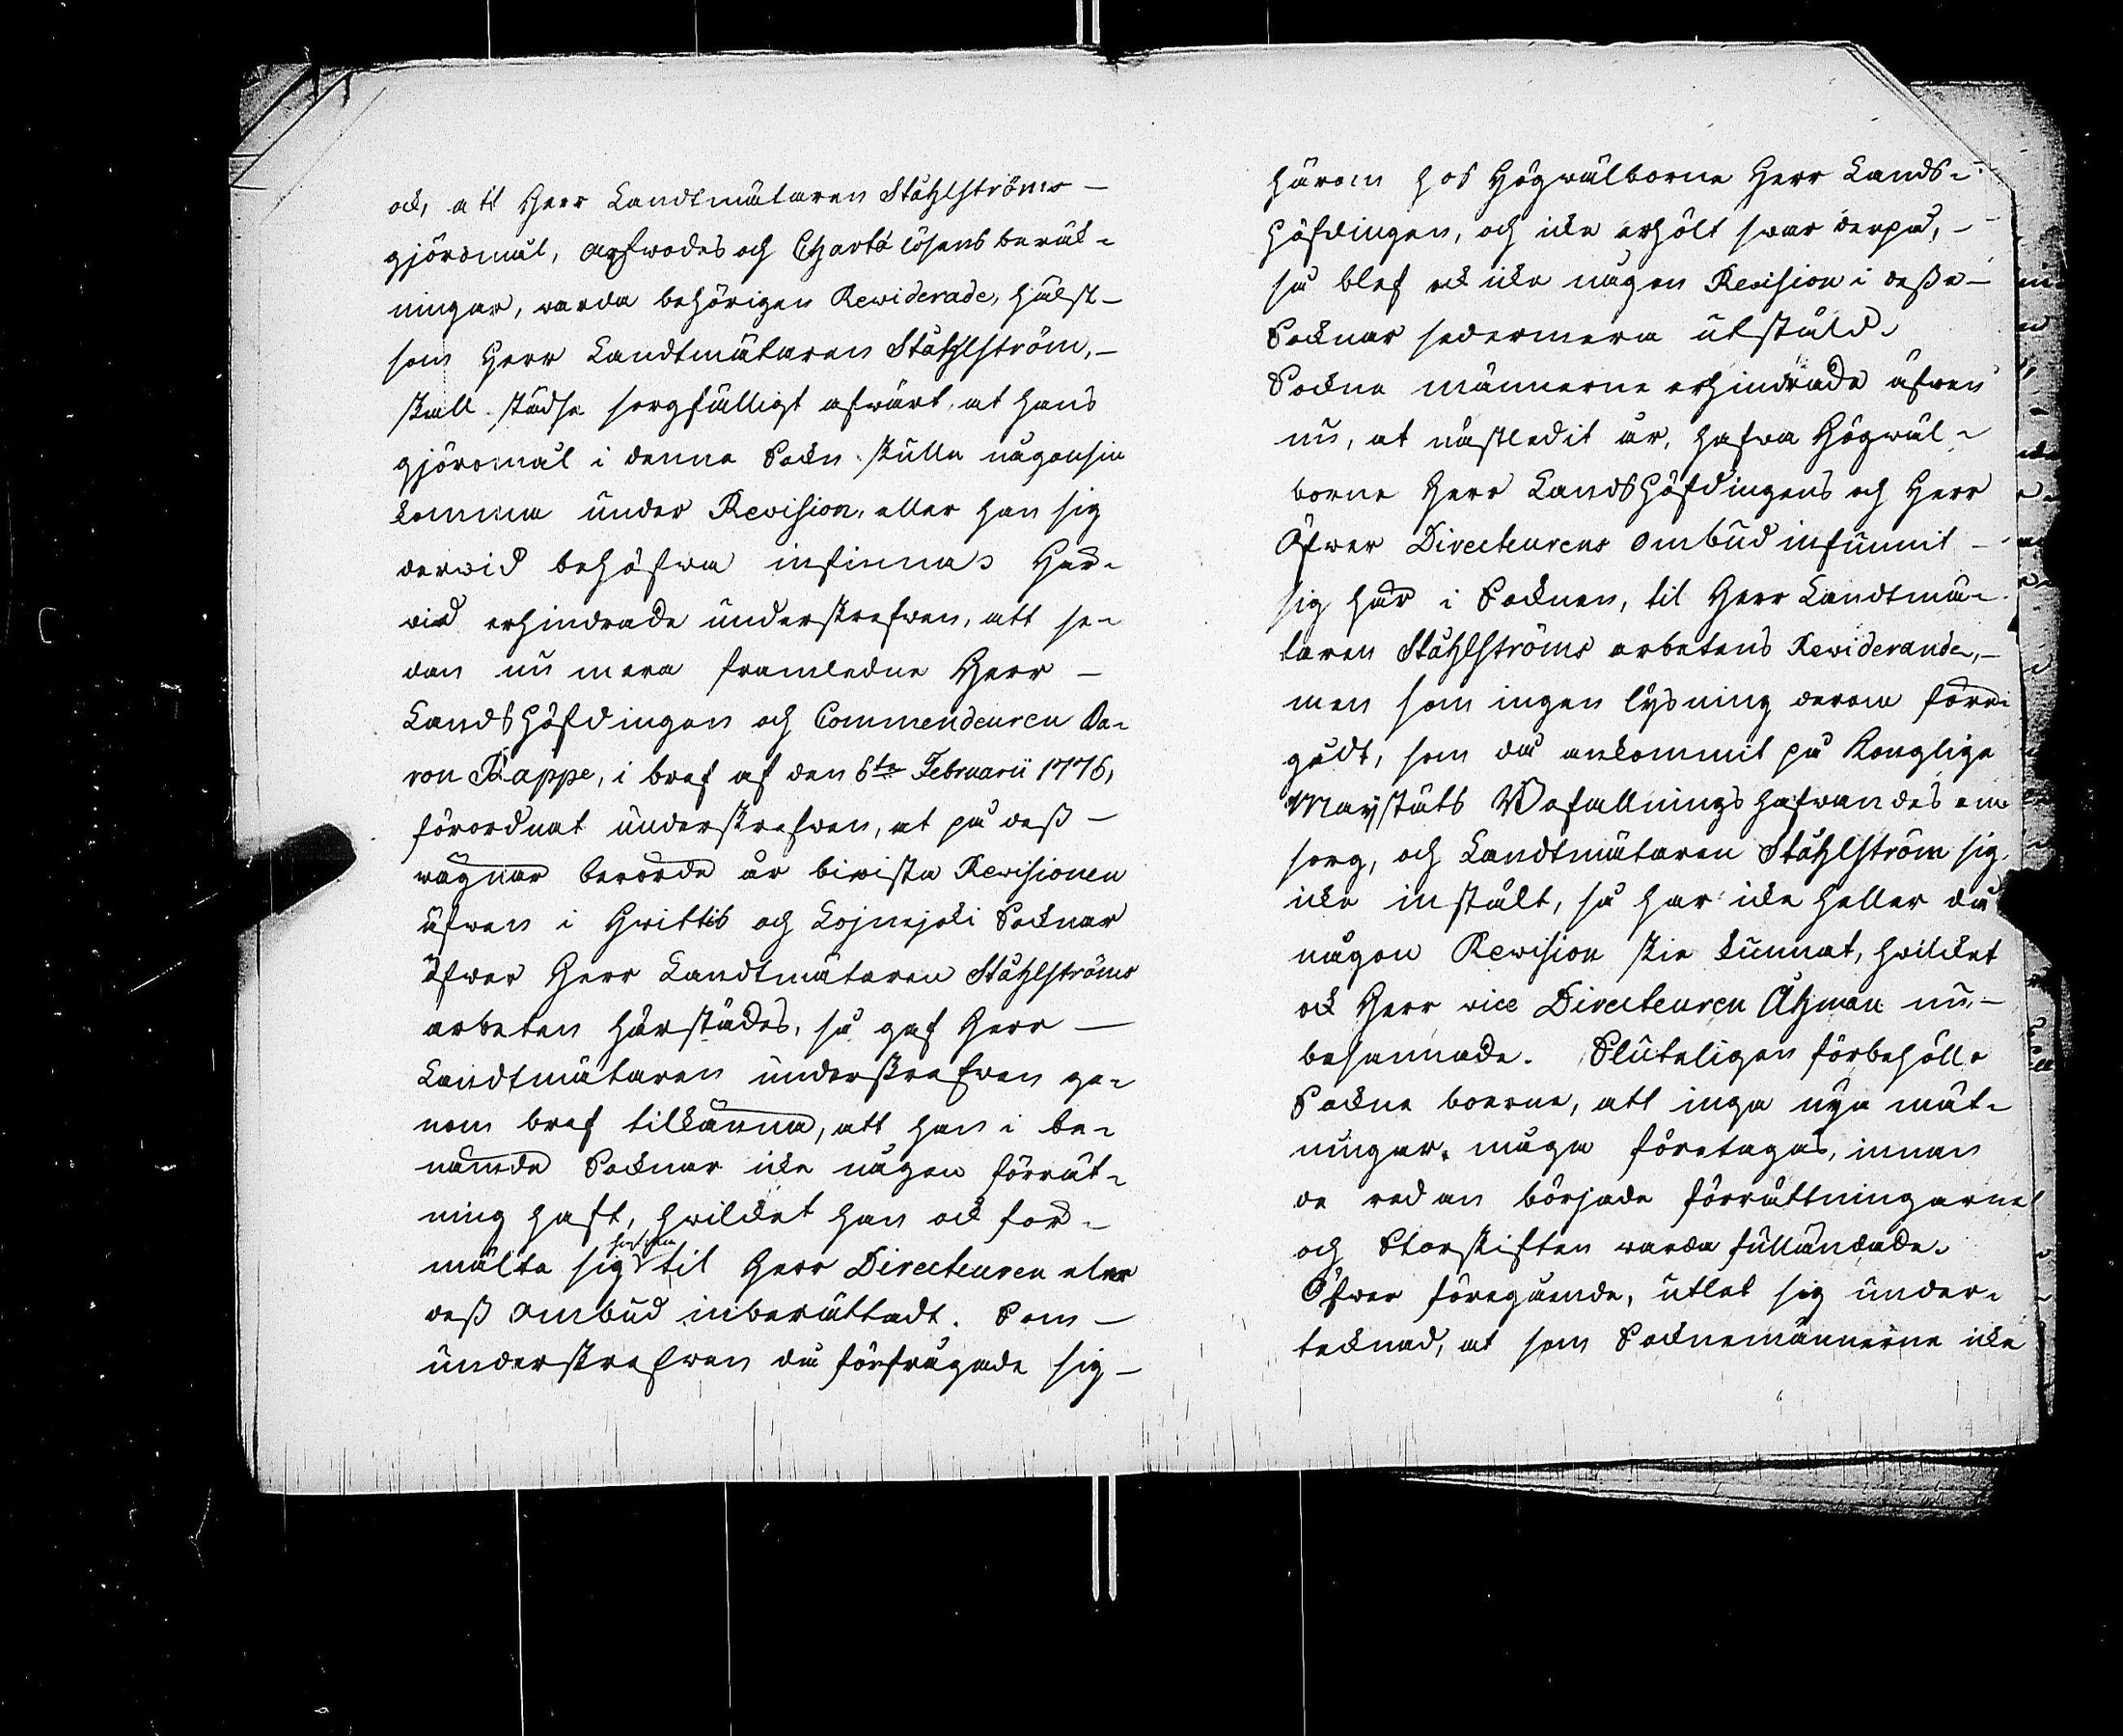 ock, att Herr Landtmätaren Ståhlströms
gjöromål, Arfwodes och Charta lösens beräk-
ningar, warda behörigen Rewiderade, hälst
som Herr Landtmätaren Ståhlström,
skall städse sorgfälligt afwärt, at hans
gjöromål i denna Sokn skulle någonsin
komma under Revision, eller han sig
derwid behöfwa infinna. Här-
wid erhindrade underskrefwen, att se-
dan nu mera framledne Herr
Landshöfdingen och Commendeuren Ba-
ron Rappe, i bref af den 6te Februarii 1776,
förordnat underskrefwen, at på dess
wägnar berörde år biwista Revisionen
äfwen i Hwittis och Loimjoki Soknar
öfwer Herr Landtmätaren Ståhlströms
arbeten härstädes, så gaf Herr
Landtmätaren underskrefwen ge-
nom bref tillkänna, att han i be-
nämde Soknar icke någon förrät-
ning haft, hwilcket han ock för-
mälte sig hafwa til Herr Directeuren eller
dess ombud inberättadt. Som
underskrefwen då förfrågade sig
härom hos Högwälborne Herr Lands-
höfdingen, och icke erhölt swar derpå,
så blef ock icke någon Revision i desse
Socknar sedermera utstäld.
Sockne männerne erhindrade äfwen
nu, at nästledit år, hafwa Högwäl-
borne Herr Landshöfdingens och Herr
Öfwer Directeurens ombud infunnit
sig här i Socknen, til Herr Landtmä-
taren Ståhlströms arbetens Rewiderande,
men som ingen lysning derom föru-
gådt, som då ankommit på Kongliga
Mayståts Befallningshafwandes om-
sorg, och Landtmätaren Ståhlström sig
icke instält, så har icke heller då
någon Rewision skie kunnat, hwilcket
ock Herr vice Directeuren Åhman nu
besannade. Sluteligen förbehöllo
Sockne boerne, att inga nya mät-
ningar måga företagas, innan
de redan började förrättningarne
och Storskiften warda fulländade.
Öfwer föregående, utlät sig under-
tecknad, at som Socknemännerne icke